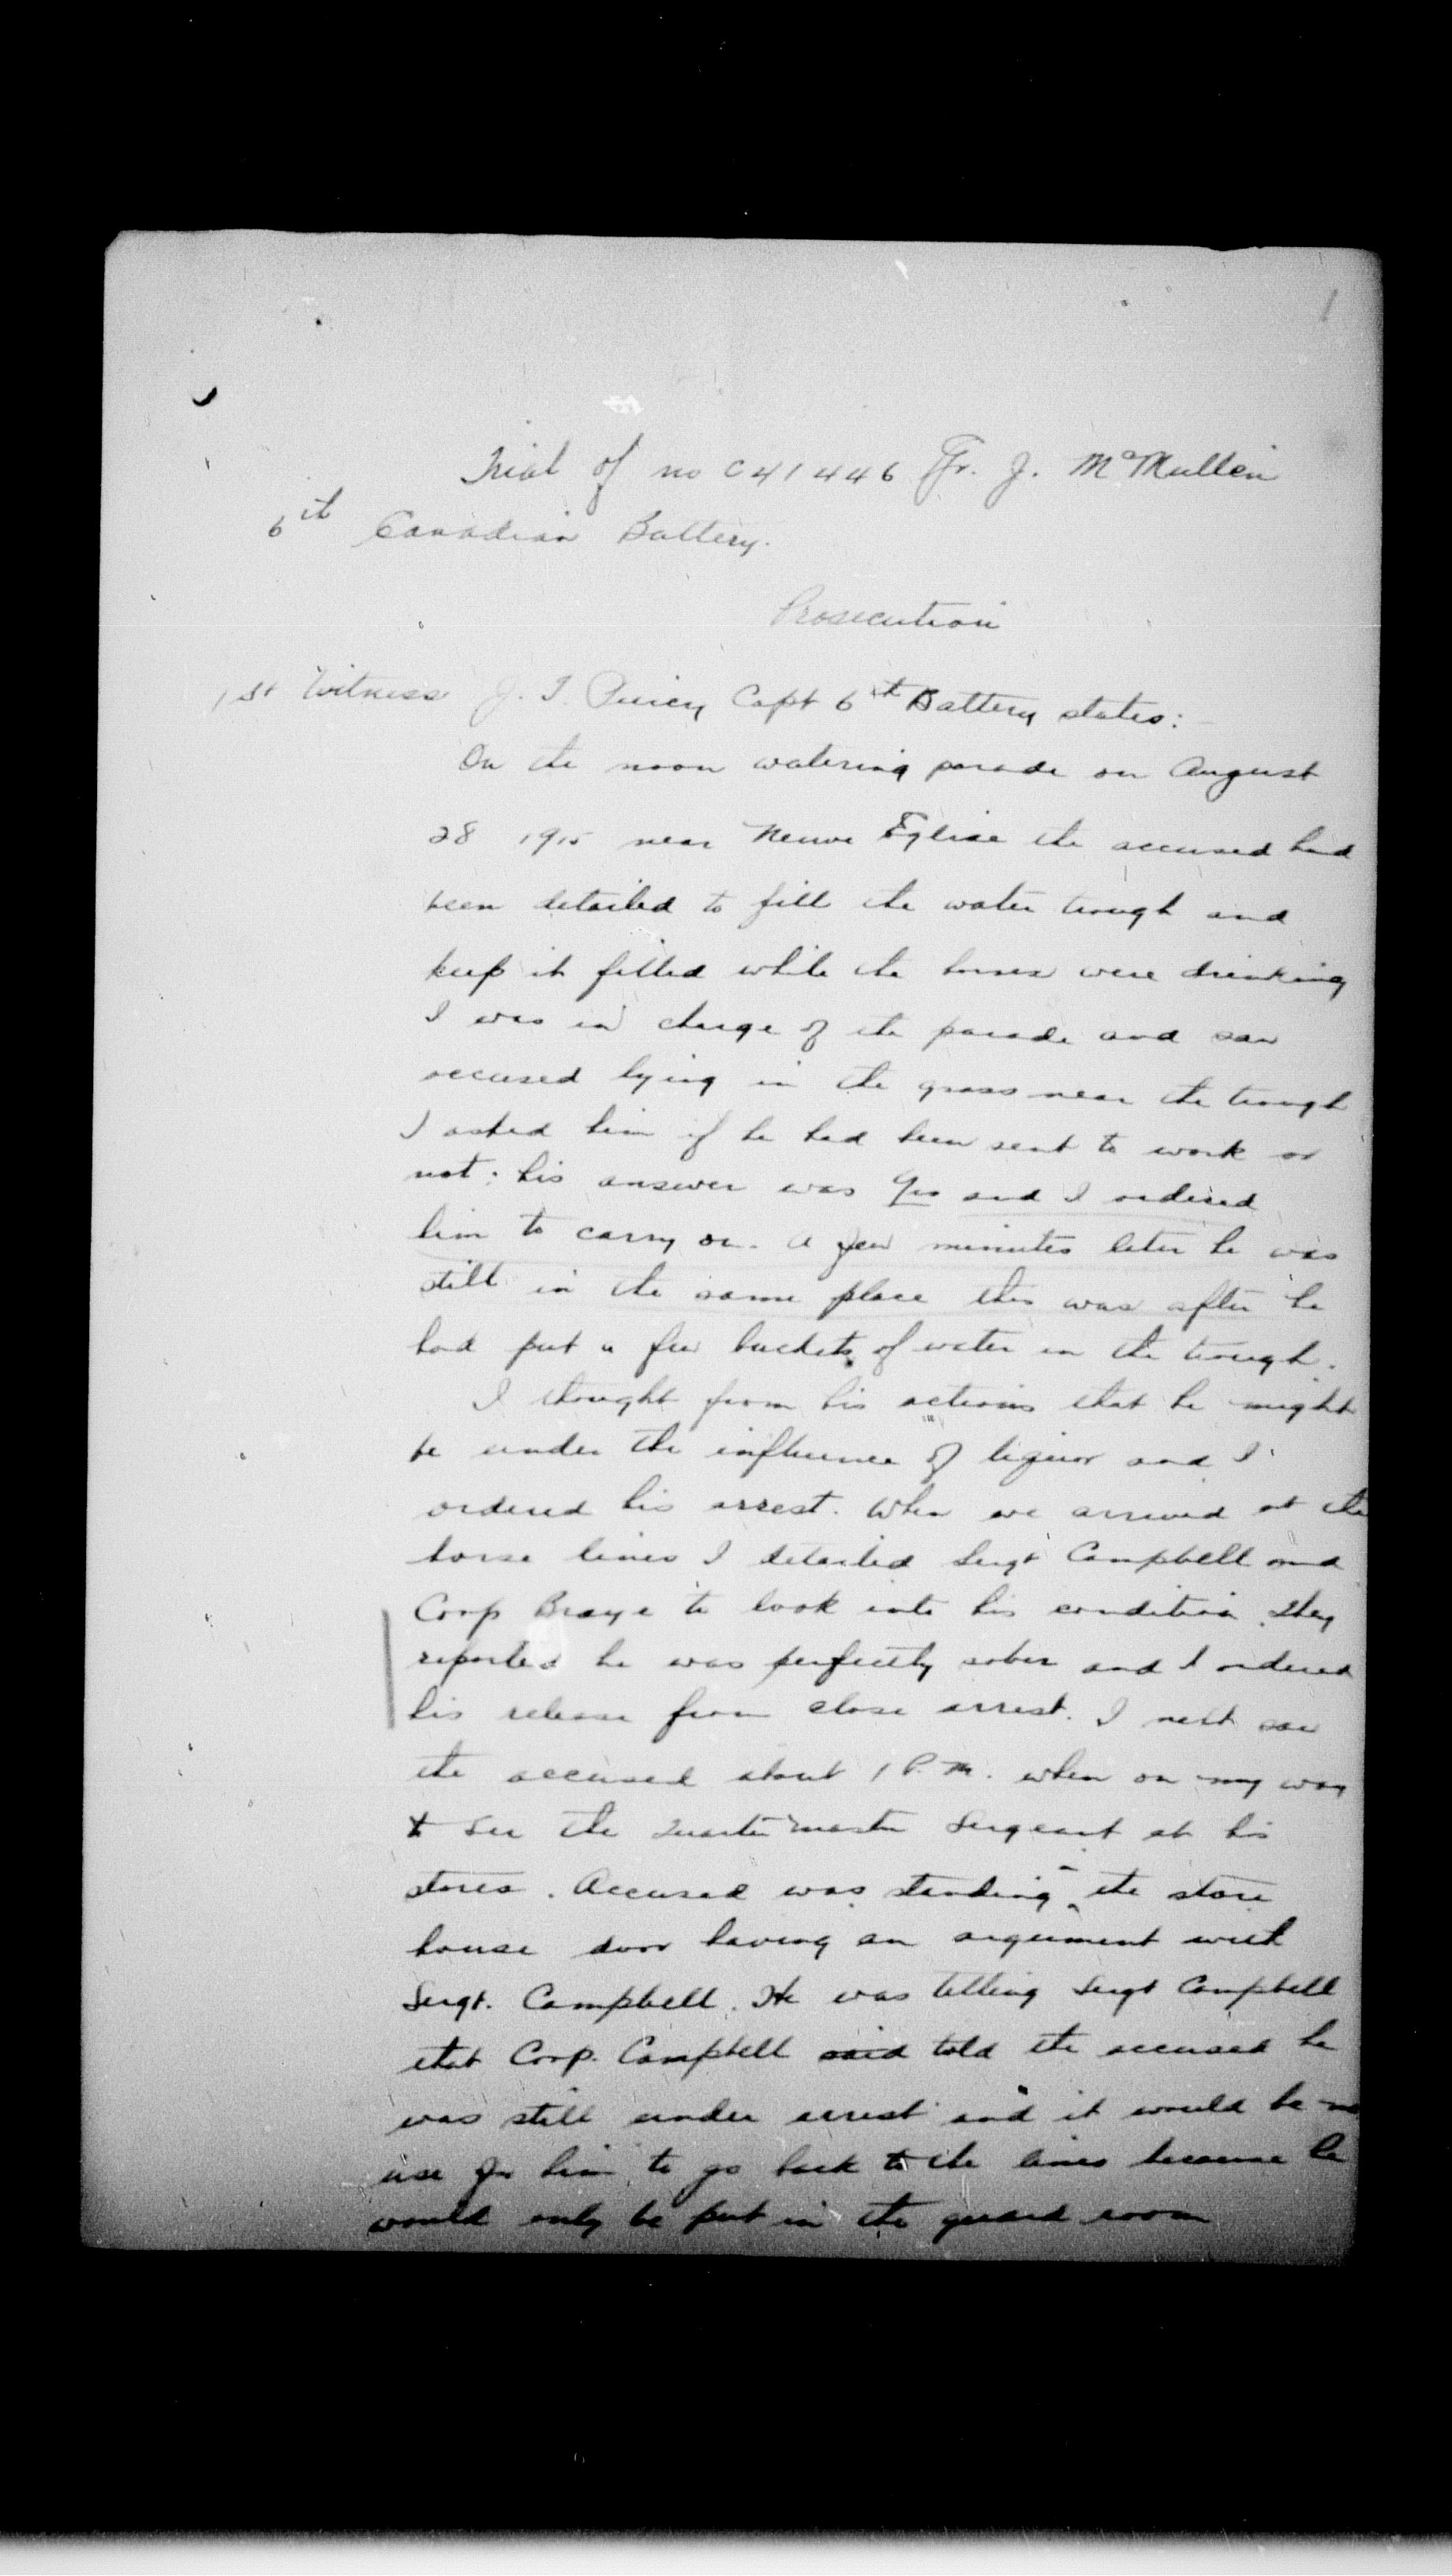 1
Trial of no C41446 Gr. J. McMullen
6th Canadian Battery.
Prosecution
1st Witness J. T. Capt 6th Battery states:
On the noon watering parade on August
28 1915 near Neuve Eglise the accused had
been detailed to fill the water trough and
keep it filled while the horses were drinking
I was in charge of the parade and saw
accused lying in the grass near the trough
I asked him if he had been sent to work or
not; his answer was Yes and I ordered
him to carry on. A few minutes later he was
still in the same place this was after he
had put a few buckets of water in the trough.
I thought from his actions that he might
be under the influence of liquor and I
ordered his arrest. When we arrived at the
horse lines I detailed Sergt Campbell and
Corp Braye to look into his condition. They
reported he was perfectly sober and I ordered
his release from close arrest. I next saw
the accused about 1 P.M. when on my way
to see the Quarter master Sergeant at his
stores. Accused was standing the store
house door having an argument with
Sergt. Campbell. He was telling Sergt Campbell
that Corp. Campbell said told the accused he
was still under arrest and it would be no
use for him to go back to the lines because he
would only be put in the guard room